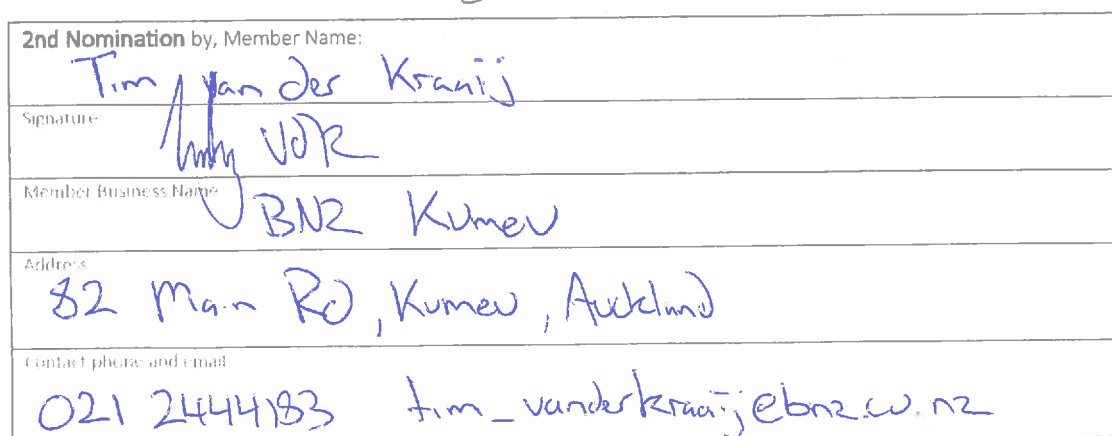 2nd Nomination by, Member Name:
Tim van der Kraaij
Signature
VDK
Member Business Name
BNZ Kumeu
Address
82 Main Rd, Kumeu, Auckland
Contact phone and email
021 2444183 tim_vanderkraaij@bnz.co.nz